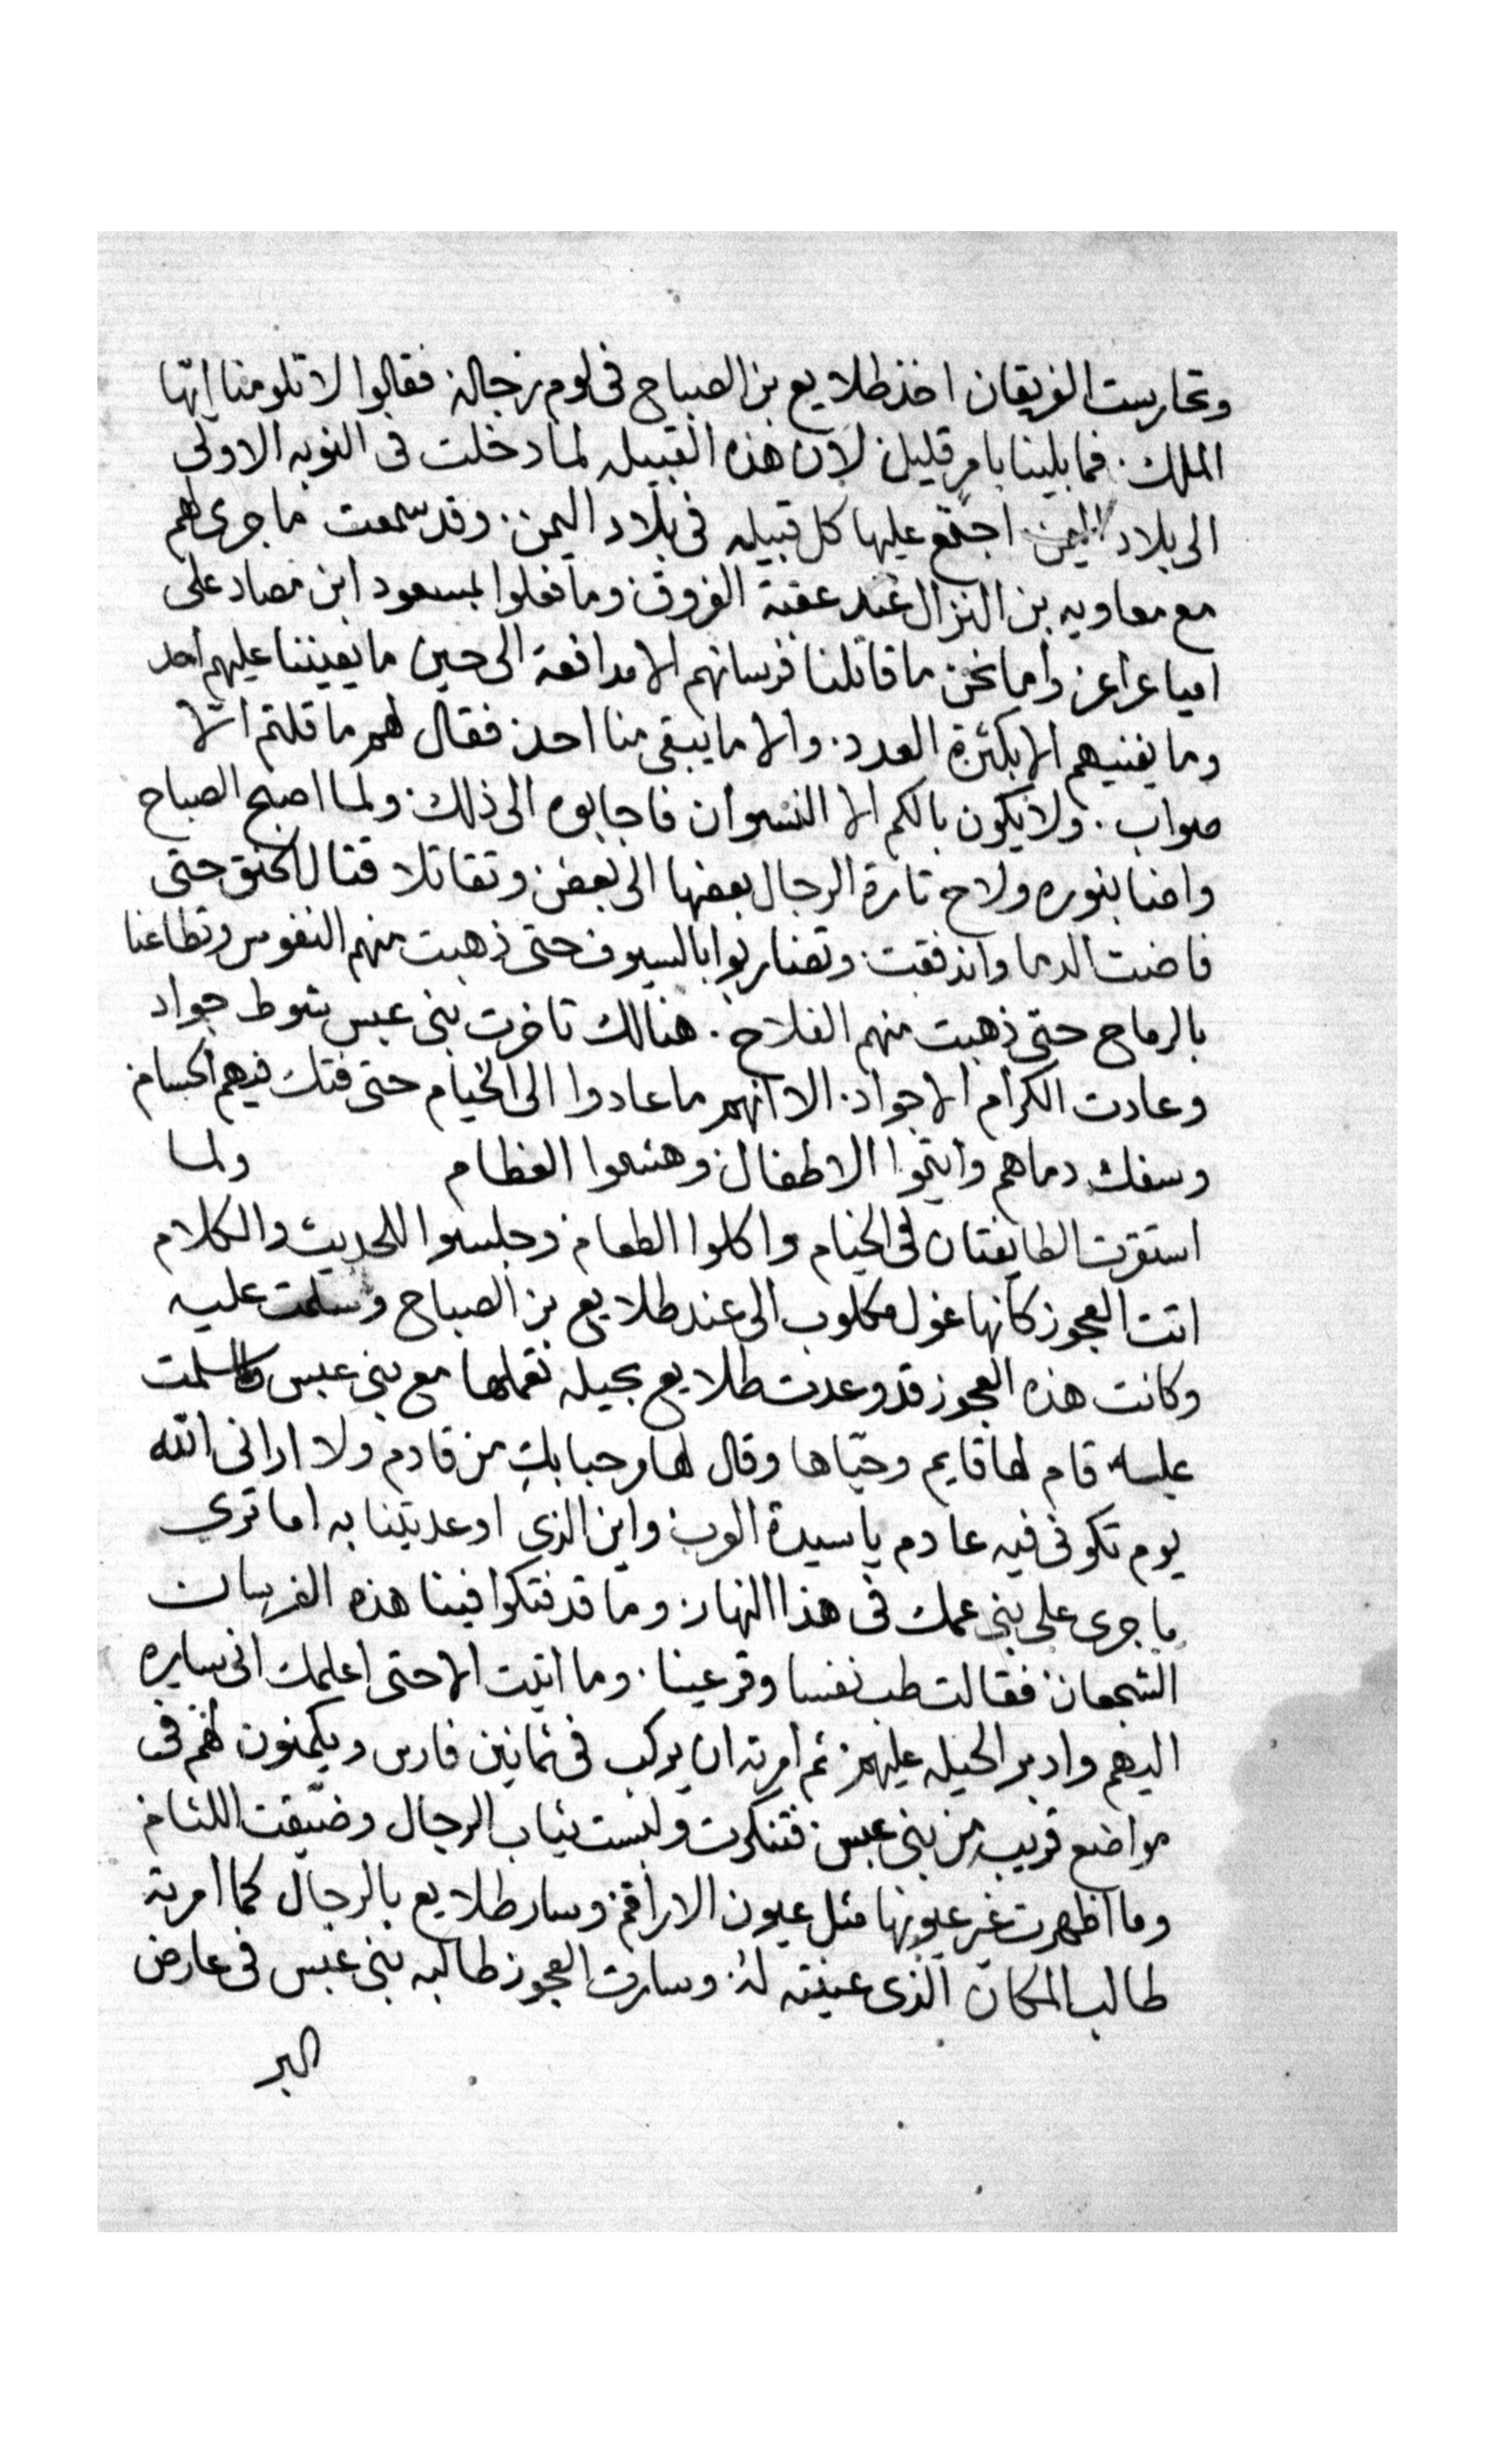 وتحارست الفريقان اخذ طلايع بن الصباح فى لوم رجاله فقالوا لا تلومنا ايّها
الملك. فما بلينا بامرٍ قليل. لان هذه القبيله لما دخلت فى النوبه الاولى
الى بلاد اليمن اجتمع عليها كل قبيله فى بلاد اليمن. وقد سمعت ما جرى لهم
مع معاويه بن النزال عند عقبة الفروق. وما فعلوا بمسعود ابن مصاد على
امياعراعر. واما نحن ما قاتلنا فرسانهم الا مدافعة الى حين ما يعيننا عليهم احد
وما يفنيهم الا بكثرة العدد. والا ما يبقى منا احد. فقال لهم ما قلتم الّا
صواب. ولا يكون بالكم الا النسوان فاجابوه الى ذلك. ولما اصبح الصباح
واضا بنوره ولاح تارة الرجال بعضها الى بعض. وتقاتلا قتال الحنق حتى
فاضت الدما واندفقت. وتضاربوا بالسيوف حتى ذهبت منهم النفوس وتطاعنا
بالرماح حتى ذهبت منهم الفلاح. هنالك تاخرت بنى عبس شوط جواد
وعادت الكرام الاجواد. الا انهم ما عادوا الى الخيام حتى فتك فيهم الحسام.
وسفك دماهم وايتموا الاطفال. وهشموا العظام ولما
استقرت الطايفتان فى الخيام واكلوا الطعام. وجلسوا للحديث والكلام
اتت العجوز كانها غول مكلوب الى عند طلايع بن الصباح وسلمت عليه
وكانت هذه العجوز قد وعدت طلايع بحيله تعملها مع بنى عبس سلمت
عليه قام لها قايم وحيّاها وقال لها مرحبا بكِ من قادم ولا ارانى الله
يوم تكونى فيه عادم يا سيدة العرب. واين الذى اوعدتينا به اما ترى
ما جرى على بنى عمك فى هذا النهار. وما قد فتكوا فينا هذه الفرسان
الشجعان. فقالت طب نفسا وقر عينا. وما اتيت الا حتى اعلمك انى سايره
اليهم وادبر الحيله عليهم. ثم امرته ان يركب فى ثمانين فارس ويكمنون لهم فى
مواضع قريب من بنى عبس. فتنكرت ولبست ثياب الرجال وضيّقت اللثام
وما اظهرت غير عيونها مثل عيون الاراقم. وسار طلايع بالرجال كما امرته
طالب المكان الذى عينته له. وسارت العجوز طالبه بنى عبس فى عارض
البر